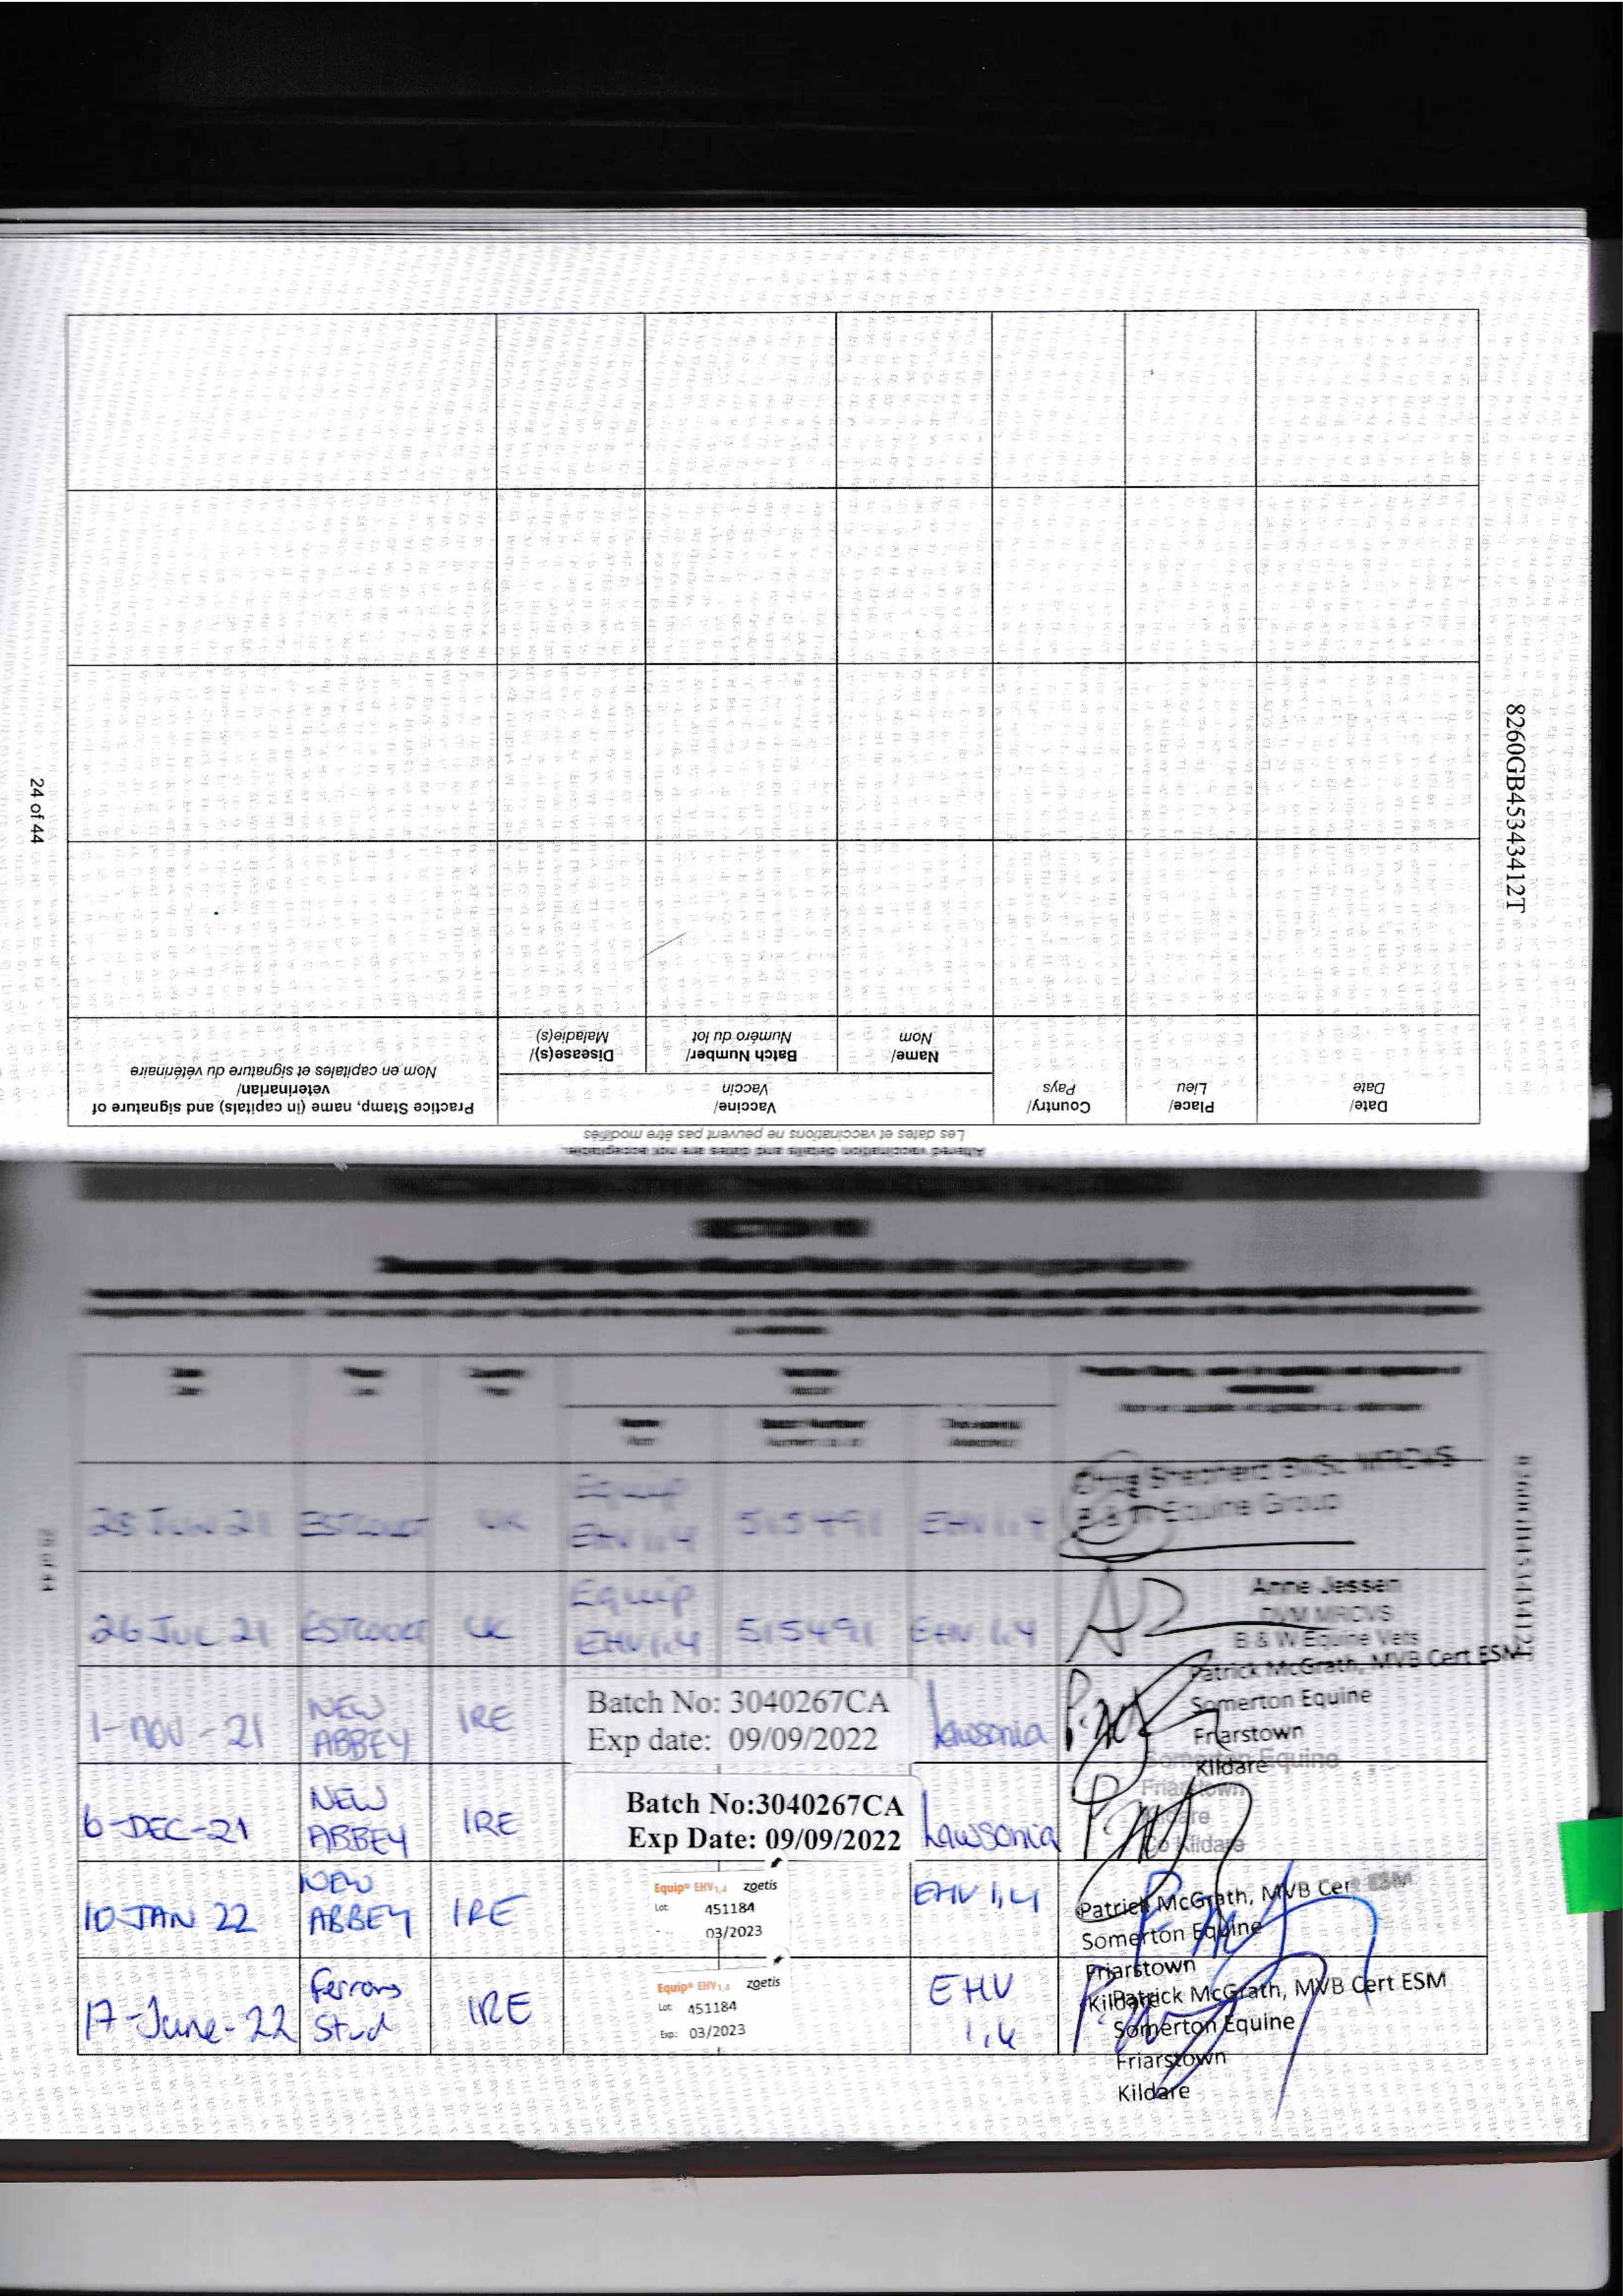 8260GB45343412T
24 of 44
Altered vaccination details and dates are not acceptable.
Les dates et vaccinations ne peuvent pas être modifiés
Date/
Date
Place/
Lieu
Country/
Pays
Vaccine/
Vaccin
Practice Stamp, name (in capitals) and signature of
veterinarian/
Nom en capitales et signature du vétérinaire
Name/
Nom
Batch Number/
Numéro du lot
Disease(s)/
Maladie(s)
28 JUN 21
ESTCOURT
UK
Equip
EHV 1,4
515491
EHV 1,4
Shepherd BVSc MRCVS
B & W Equine Group
26 JUL 21
ESTCOURT
UK
Equip
EHV 1,4
515491
EHV 1,4
Anne Jessen
DVM MRCVS
B & W Equine Vets
1-NOV-21
NEW
ABBEY
IRE
Batch No: 3040267CA
Exp date: 09/09/2022
Lawsonia
Patrick McGrath, MVB Cert ESM
Somerton Equine
Friarstown
Kildare
6-DEC-21
NEW
ABBEY
IRE
Batch No:3040267CA
Exp Date: 09/09/2022
Lawsonia
Somerton Equine
Friarstown
Kildare
Co Kildare
10 JAN 22
NEW
ABBEY
IRE
Equip® EHV1,4 zoetis
Lot: 451184
03/2023
EHV 1,4
Patrick McGrath, MVB Cert ESM
Somerton Equine
Friarstown
Kildare
17-June-22
Ferrans
Stud
IRE
Equip® EHV1,4 zoetis
Lot: 451184
Exp.: 03/2023
EHV
1,4
Patrick McGrath, MVB Cert ESM
Somerton Equine
Friarstown
Kildare